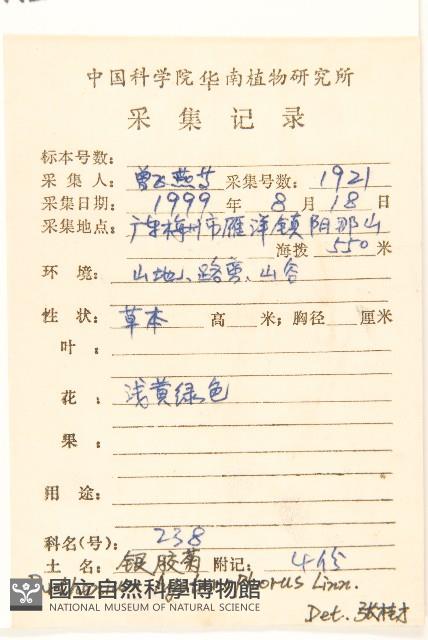 中国科学院华南植物研究所
采集记录
标本号数：
采集人：曾飞燕等 采集号数：1921
采集日期：1999年8月18日
采集地点：广东梅州市雁洋镇阴那山
海拨 550 米
环境：山地、路旁、山谷
性状：草本 高 米；胸径 厘米
叶：
花：浅黄绿色
果：
用途：
科名(号)：238
土名：银胶菊 附记：4份
Linn.
國立自然科學博物館
NATIONAL MUSEUM OF NATURAL SCIENCE
Det. 张桂才